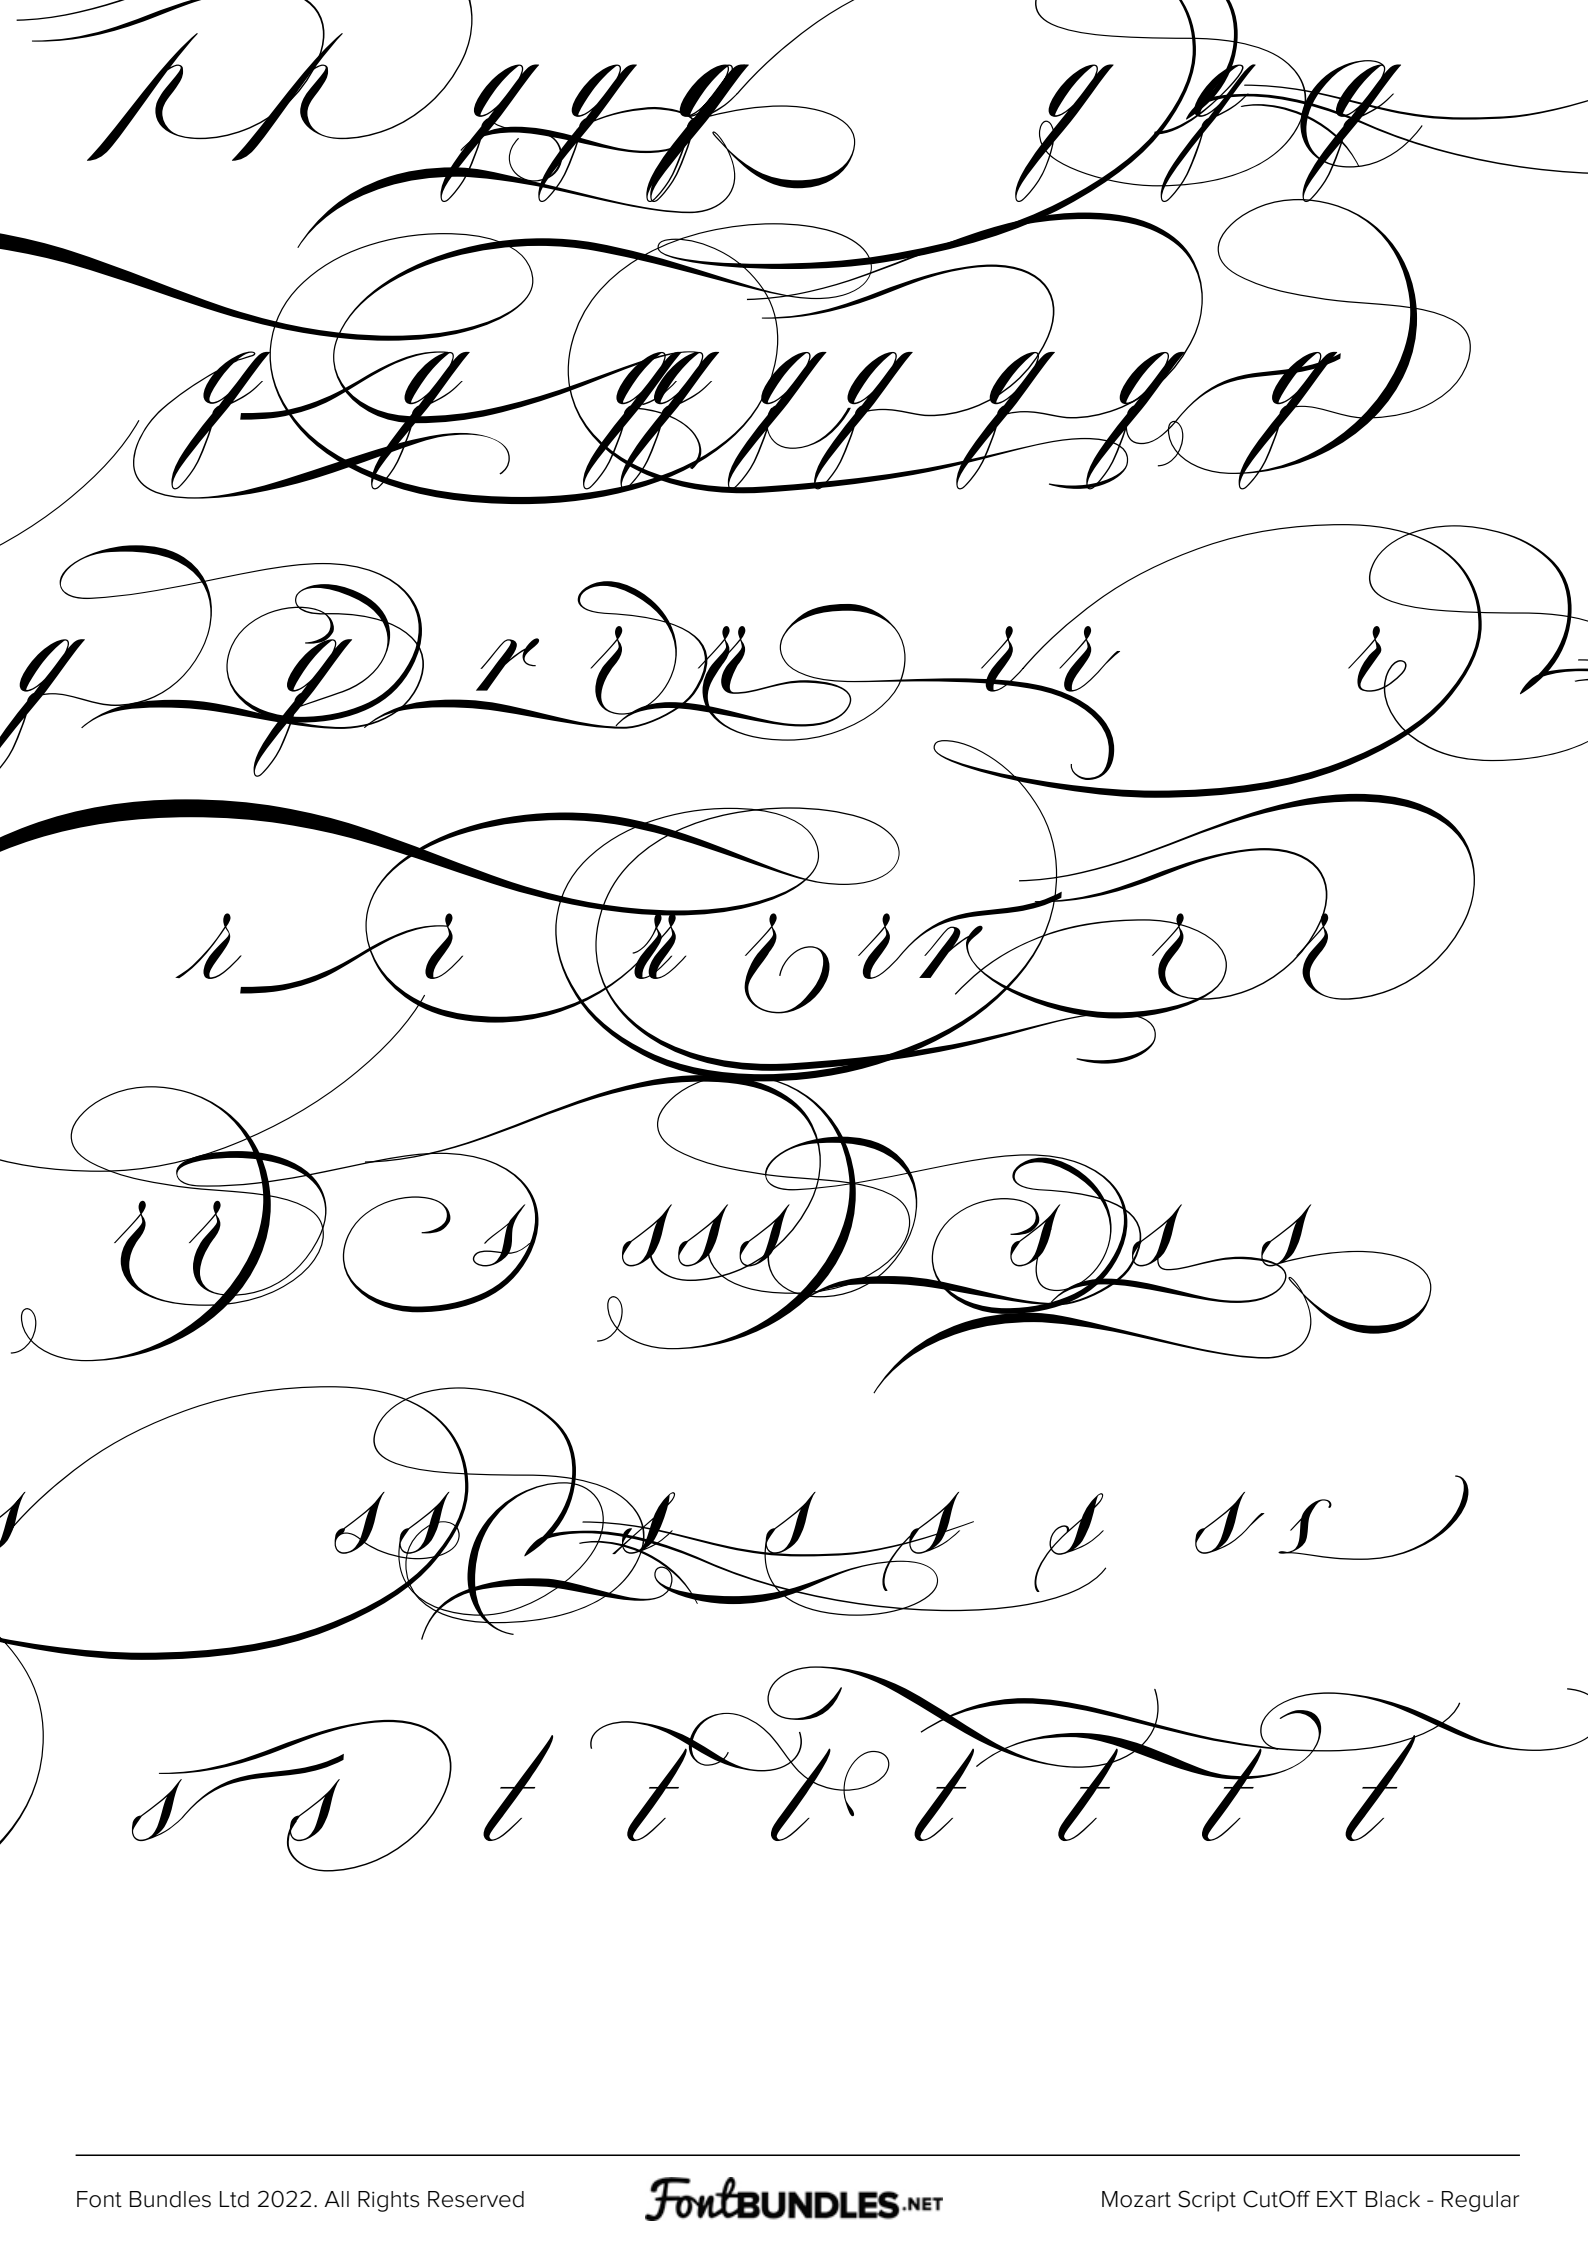 p p q q q q q q
q q q q q q q q q
q q r r r r r r r r
r r r r r r r r r
r r s s s s s s s
s s s s s s s s s s
s s t t t t t t t
Font Bundles Ltd 2022. All Rights Reserved
FontBUNDLES.NET
Mozart Script CutOff EXT Black - Regular